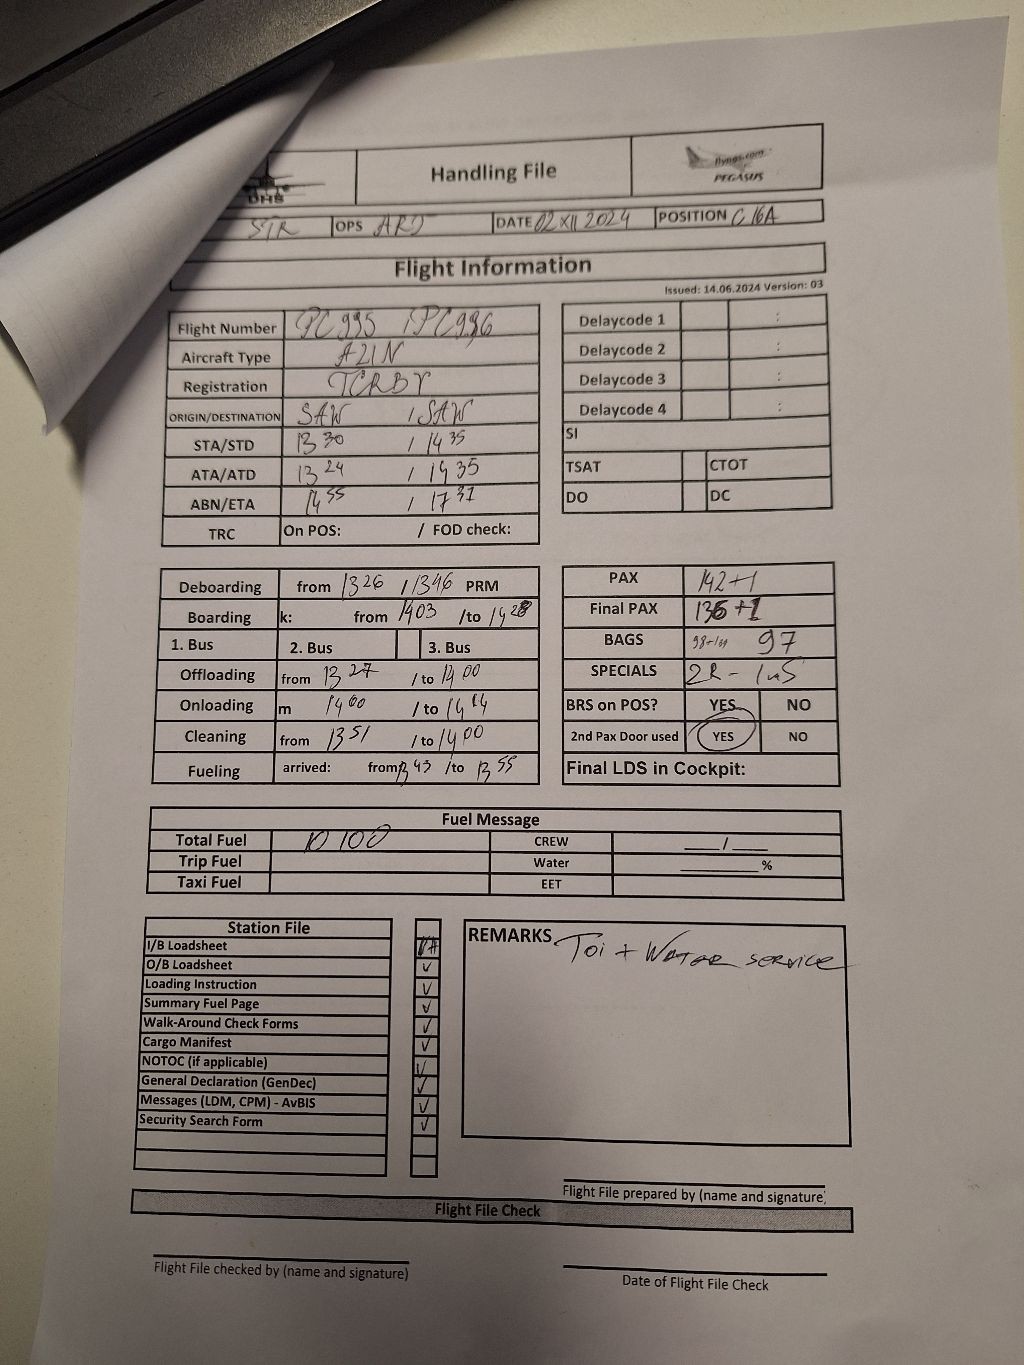 DHS
Handling File
flypgs.com
PEGASUS
STR OPS DATE 02 XII 2024 POSITION C 16A
Flight Information
Issued: 14.06.2024 Version: 03
Flight Number PC 995 / PC 996
Aircraft Type A21N
Registration TCRBY
ORIGIN/DESTINATION SAW / SAW
STA/STD 13 30 / 14 35
ATA/ATD 13 24 / 14 35
ABN/ETA 14 55 / 17 31
TRC On POS: / FOD check:
Delaycode 1 :
Delaycode 2 :
Delaycode 3 :
Delaycode 4 :
SI
TSAT CTOT
DO DC
Deboarding from 13 26 / 13 46 PRM
Boarding k: from 14 03 /to 14 28
1. Bus 2. Bus 3. Bus
Offloading from 13 27 / to 14 00
Onloading m 14 00 / to 14 14
Cleaning from 13 51 / to 14 00
Fueling arrived: from 13 43 /to 13 55
PAX 142+1
Final PAX 136+1
BAGS 97
SPECIALS
BRS on POS? YES NO
2nd Pax Door used YES NO
Final LDS in Cockpit:
Fuel Message
Total Fuel 10 100 CREW ___/___
Trip Fuel Water ________%
Taxi Fuel EET
Station File
I/B Loadsheet
O/B Loadsheet ✓
Loading Instruction ✓
Summary Fuel Page ✓
Walk-Around Check Forms ✓
Cargo Manifest ✓
NOTOC (if applicable) ✓
General Declaration (GenDec) ✓
Messages (LDM, CPM) - AvBIS ✓
Security Search Form ✓
REMARKS Toi + Water service
Flight File prepared by (name and signature)
Flight File Check
Flight File checked by (name and signature)
Date of Flight File Check